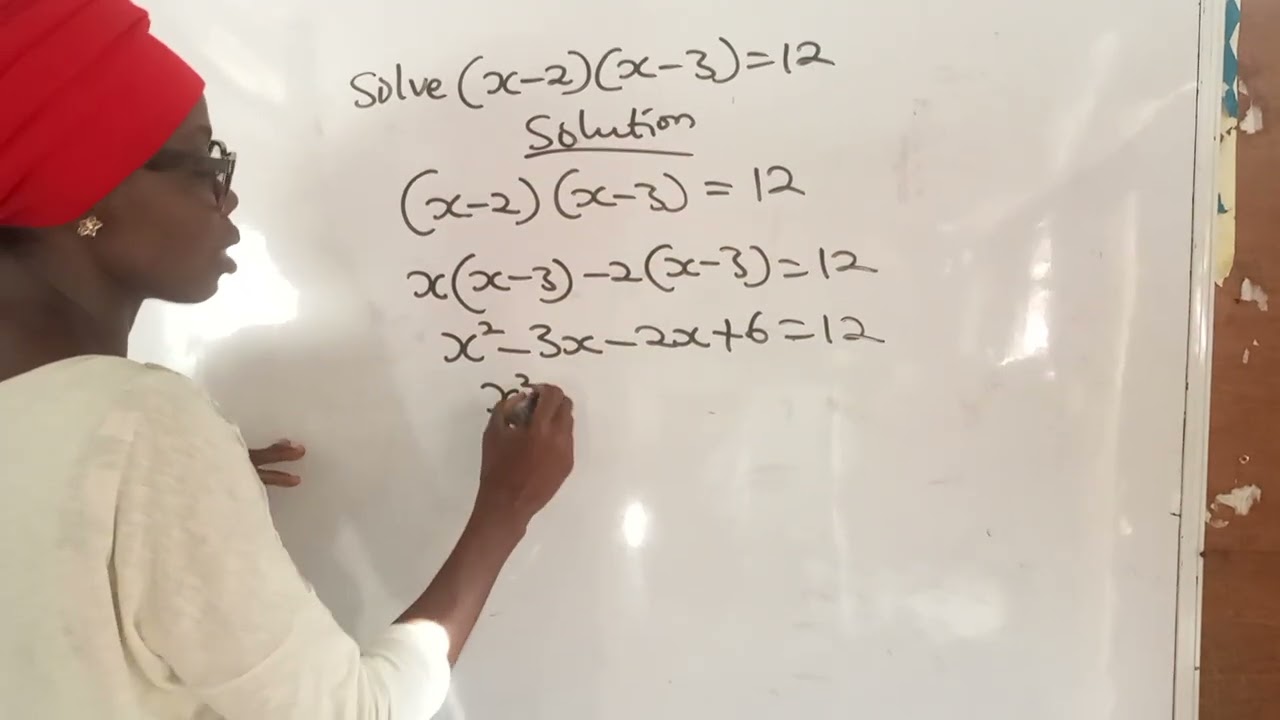 Solve (x-2)(x-3)=12
Solution
(x-2)(x-3)=12
x(x-3)-2(x-3)=12
x²-3x-2x+6=12
x²